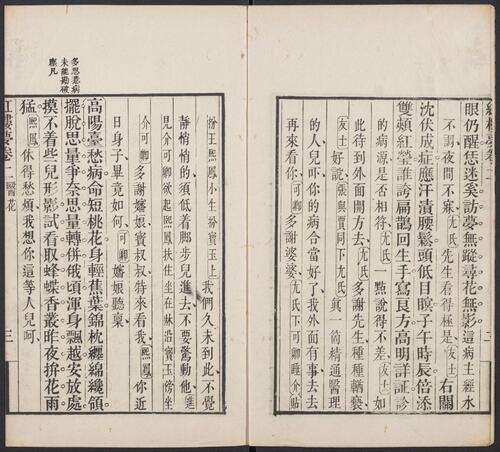 眼仍醒恁迷奚訪夢無蹤尋花無影這病主經水
不調夜間不寐尤氏先生看得極是友士右關
沈伏成症應汗漬腰鬆頭低目瞑子午時辰倍添
雙頰紅瑩誰誇扁鵲回生手寫良方高明詳証診
的病源是否相符尤氏一點說得不差友士如
此待到外面開方去尤氏多謝先生種種猶褻
友士好說張與賈同下尤氏眞一箇精通醫理
的人兒吓你的病合當好了我外面有事去去
再來看你可卿多謝婆婆尤氏下可卿睡介貼
扮王熙鳳小生扮寶玉上我們久未到此不覺
靜悄悄的須低着脚步兒進去不要驚動他進
見介可卿欲起熙鳳扶住坐在牀沿寶玉傍坐
介可卿多謝嬸娘寶叔叔特來看我熙鳳你近
日身子畢竟如何可卿嬸娘聽稟
高陽臺愁病命短桃花身輕蕉葉錦枕纏綿纔領
擺脫思量爭奈思量轉併俄頃渾身飄越安放處
摸不着些兒形影試看取蜂蝶香叢昨夜捹花雨
猛熙鳳休得愁煩我想你這等人兒呵
多思惹病
未能勘破
塵凡
紅樓夢卷二 醫花 三